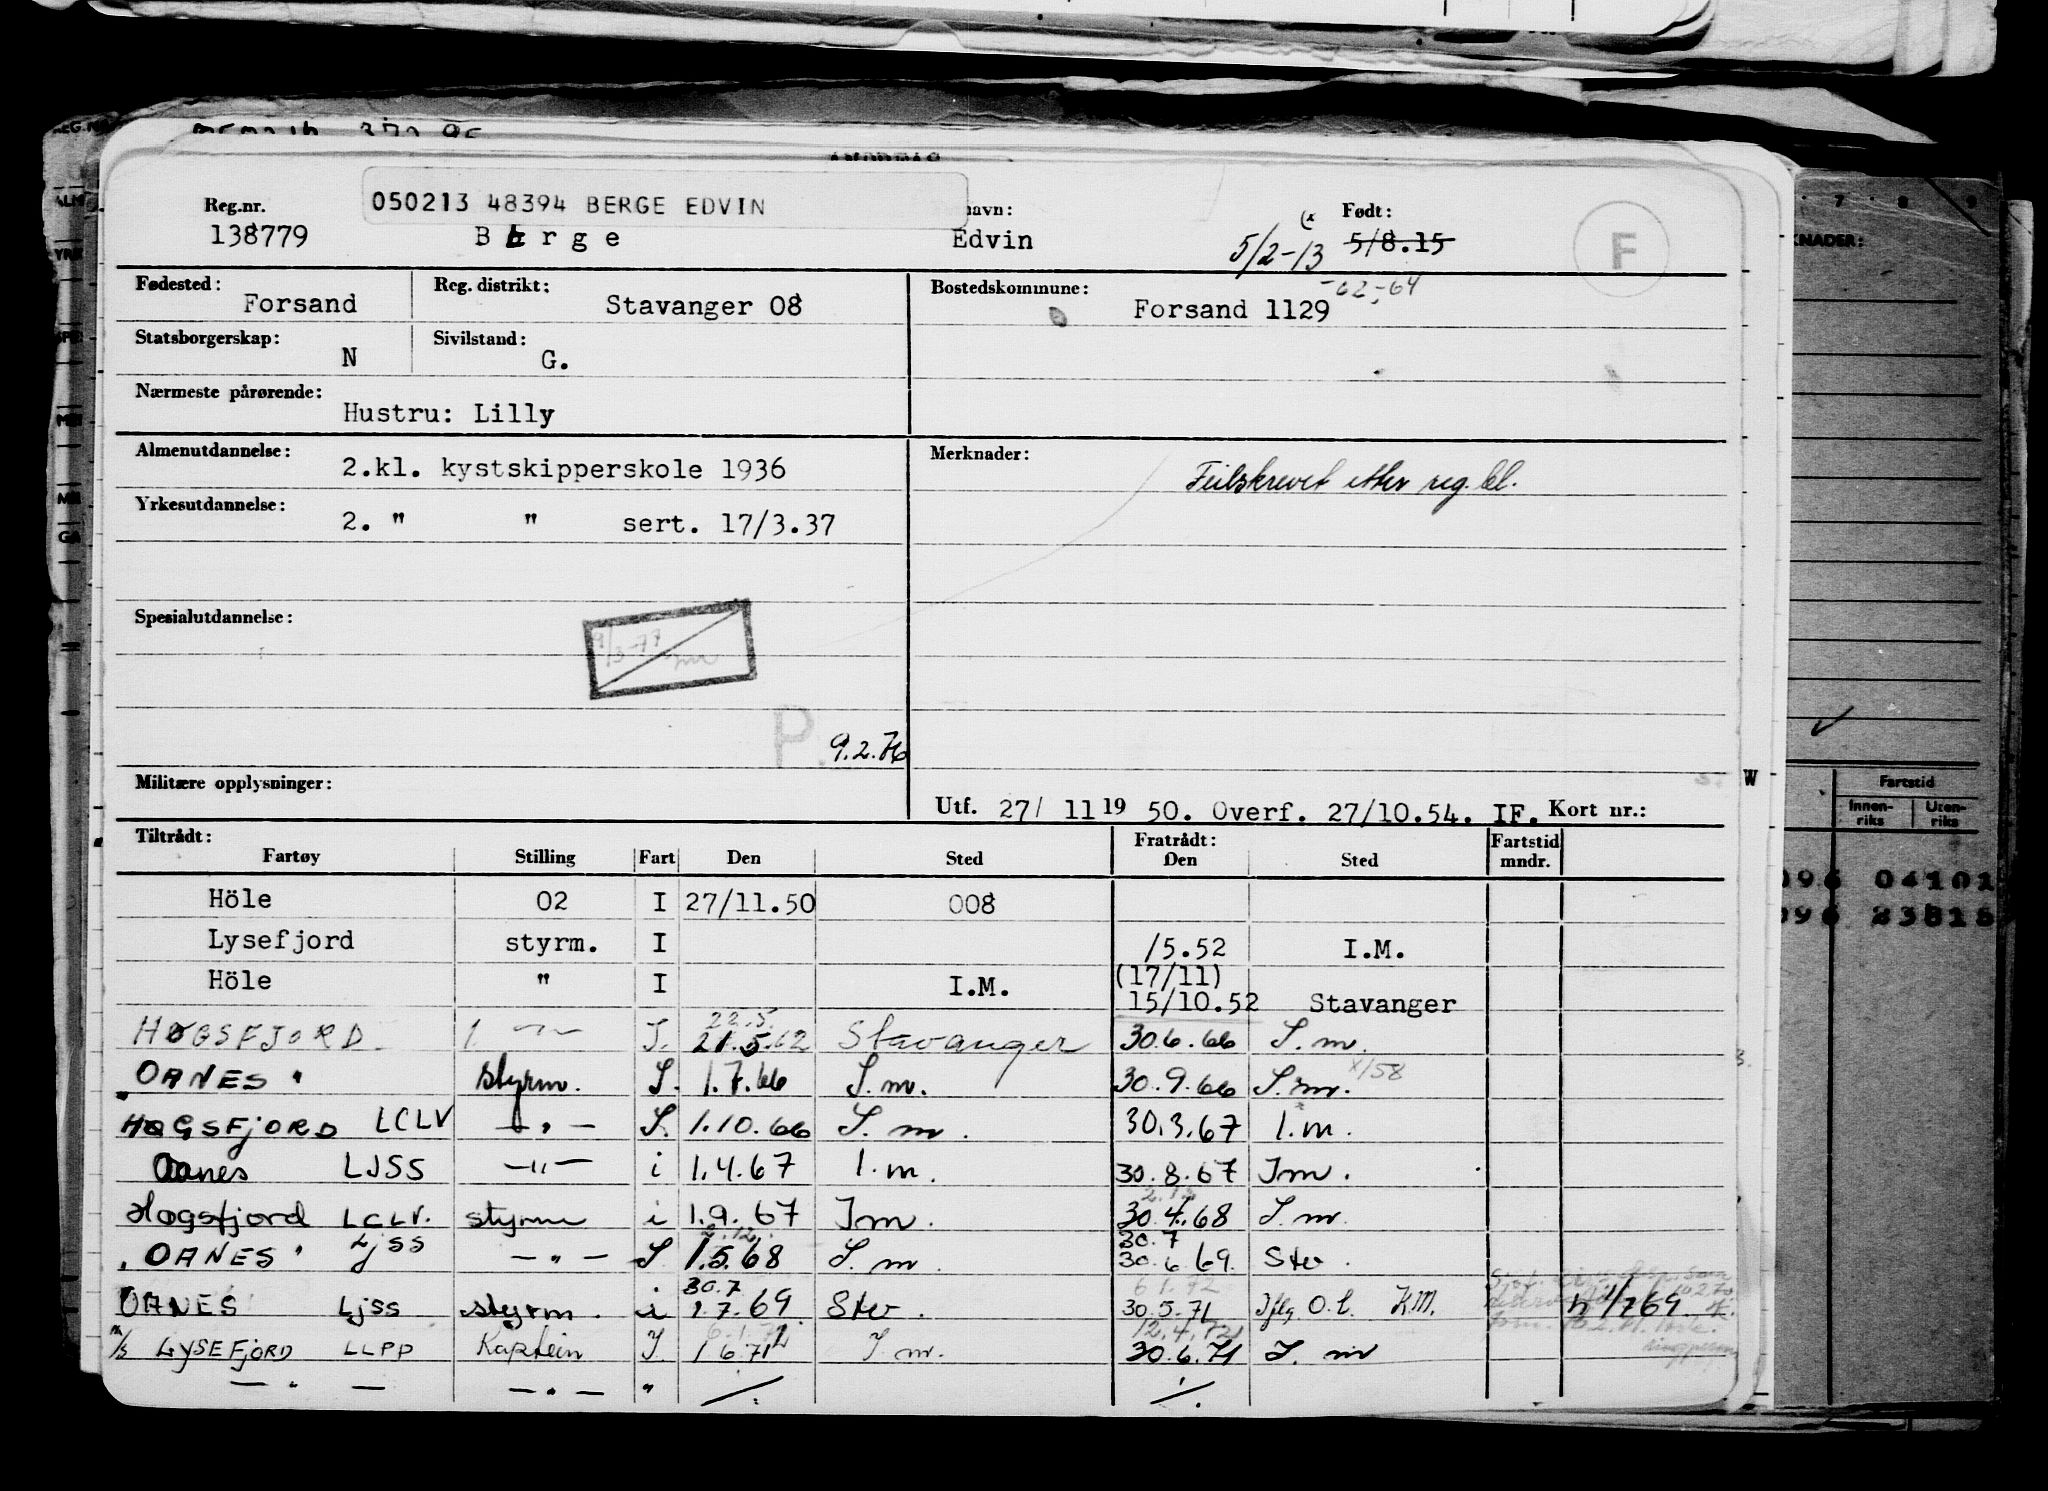 050213 48394 BERGE EDVIN
Reg.nr. navn: Født:
138779 Berge Edvin 5/2-13 (x 5/8.15 F
-62-64
Fødested: Reg. distrikt: Bostedskommune:
Forsand Stavanger 08 Forsand 1129
Statsborgerskap: Sivilstand:
N G.
Nærmeste pårørende:
Hustru: Lilly
Almenutdannelse: Merknader:
2.kl. kystskipperskole 1936 Feilskrevet etter reg.bl.
Yrkesutdannelse:
2. " " sert. 17/3.37
Spesialutdannelse:
P. 9.2.76
Militære opplysninger:
Utf. 27/ 11 19 50. Overf. 27/10.54. IF. Kort nr.:
Tiltrådt: Fratrådt: Fartstid
Fartøy Stilling Fart Den Sted Den Sted mndr.
Höle 02 I 27/11.50 008
Lysefjord styrm. I /5.52 I.M.
Höle " I I.M. (17/11)
15/10.52 Stavanger
22.5.
HØGSFJORD. 1. -"- I. 21.5.62 Stavanger 30.6.66 S.m.
"OANES" styrm. S. 1.7.66 S.m. 30.9.66 S.m. x/58
HØGSFJORD LCLV -"- S. 1.10.66 S.m. 30.3.67 I.m.
Oanes LJSS -"- i 1.4.67 I.m. 30.8.67 Im.
Høgsfjord LCLV. styrm i 1.9.67 Im. 30.4.68 S.m.
"OANES" LJSS -"- S 1.5.68 S.m. 30.7
30.6.69. Stv.
30.7
OANES LJSS styrm. i 1.7.69 Stv. 30.5.71 Iflg O.l. K.M. 1/7 69
6.1.72
12.4.72
m/s LYSEFJORD LLPP Kaptein I. 1.6.71 I.m. 30.6.71 I.m
-"- -"- "
W
KNADER:
Fartstid
Innen-
riks
Uten-
riks
096 04101
096 23815